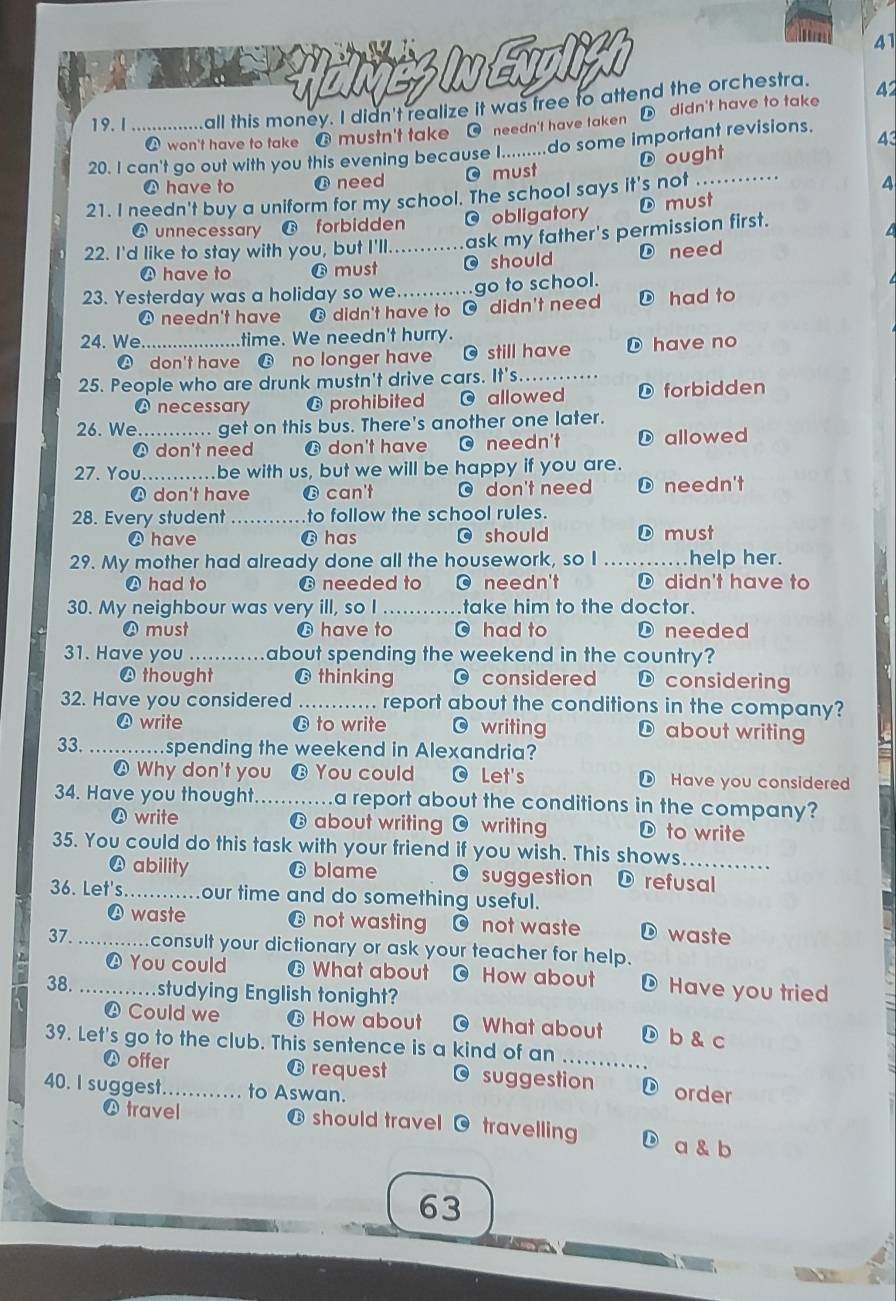 Holmes In English
19. I ..............all this money. I didn't realize it was free to attend the orchestra.
A won't have to take B mustn't take C needn't have taken D didn't have to take
20. I can't go out with you this evening because I.........do some important revisions.
A have to B need C must D ought
21. I needn't buy a uniform for my school. The school says it's not ............
A unnecessary B forbidden C obligatory D must
22. I'd like to stay with you, but I'll............ask my father's permission first.
A have to B must C should D need
23. Yesterday was a holiday so we............go to school.
A needn't have B didn't have to C didn't need D had to
24. We....................time. We needn't hurry.
A don't have B no longer have C still have D have no
25. People who are drunk mustn't drive cars. It's............
A necessary B prohibited C allowed D forbidden
26. We............ get on this bus. There's another one later.
A don't need B don't have C needn't D allowed
27. You............be with us, but we will be happy if you are.
A don't have B can't C don't need D needn't
28. Every student ............to follow the school rules.
A have B has C should D must
29. My mother had already done all the housework, so I ............help her.
A had to B needed to C needn't D didn't have to
30. My neighbour was very ill, so I ............take him to the doctor.
A must B have to C had to D needed
31. Have you ............about spending the weekend in the country?
A thought B thinking C considered D considering
32. Have you considered ............ report about the conditions in the company?
A write B to write C writing D about writing
33. ............spending the weekend in Alexandria?
A Why don't you B You could C Let's D Have you considered
34. Have you thought............a report about the conditions in the company?
A write B about writing C writing D to write
35. You could do this task with your friend if you wish. This shows............
A ability B blame C suggestion D refusal
36. Let's............our time and do something useful.
A waste B not wasting C not waste D waste
37. ............consult your dictionary or ask your teacher for help.
A You could B What about C How about D Have you tried
38. ............studying English tonight?
A Could we B How about C What about D b & c
39. Let's go to the club. This sentence is a kind of an ............
A offer B request C suggestion D order
40. I suggest............ to Aswan.
A travel B should travel C travelling D a & b
63
41
42
43
4
4